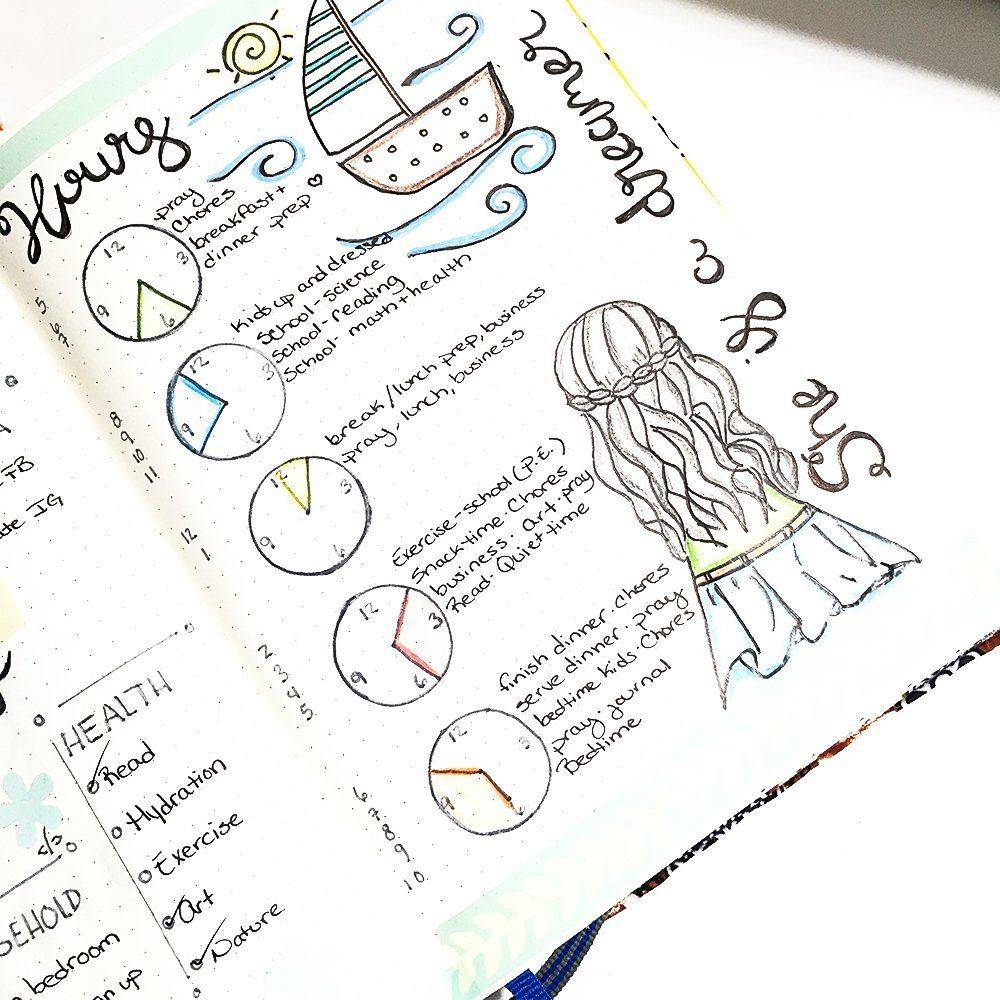 Hours
12
3
6
9
5
6
7
pray
Chores
breakfast+
dinner prep ♡
12
3
6
9
8
9
10
11
Kids up and dressed
School-science
School-reading
School-math+health
12
3
6
9
12
1
break/lunch prep, business
pray, lunch, business
12
3
6
9
2
3
4
5
Exercise-school (P.E.)
Snack-time. Chores
business. art. pray
Read. Quiet time
12
3
6
9
6
7
8
9
10
finish dinner. chores
serve dinner. pray
bedtime kids. Chores
pray. journal
Bedtime
She
is
a
dreamer
FB
IG
HEALTH
Read
Hydration
Exercise
Art
Nature
bedroom
up